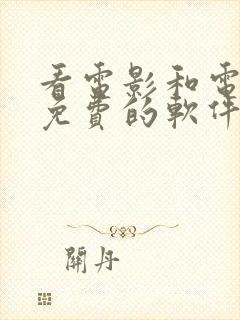 看雷影和電
免費的軟件
開丹